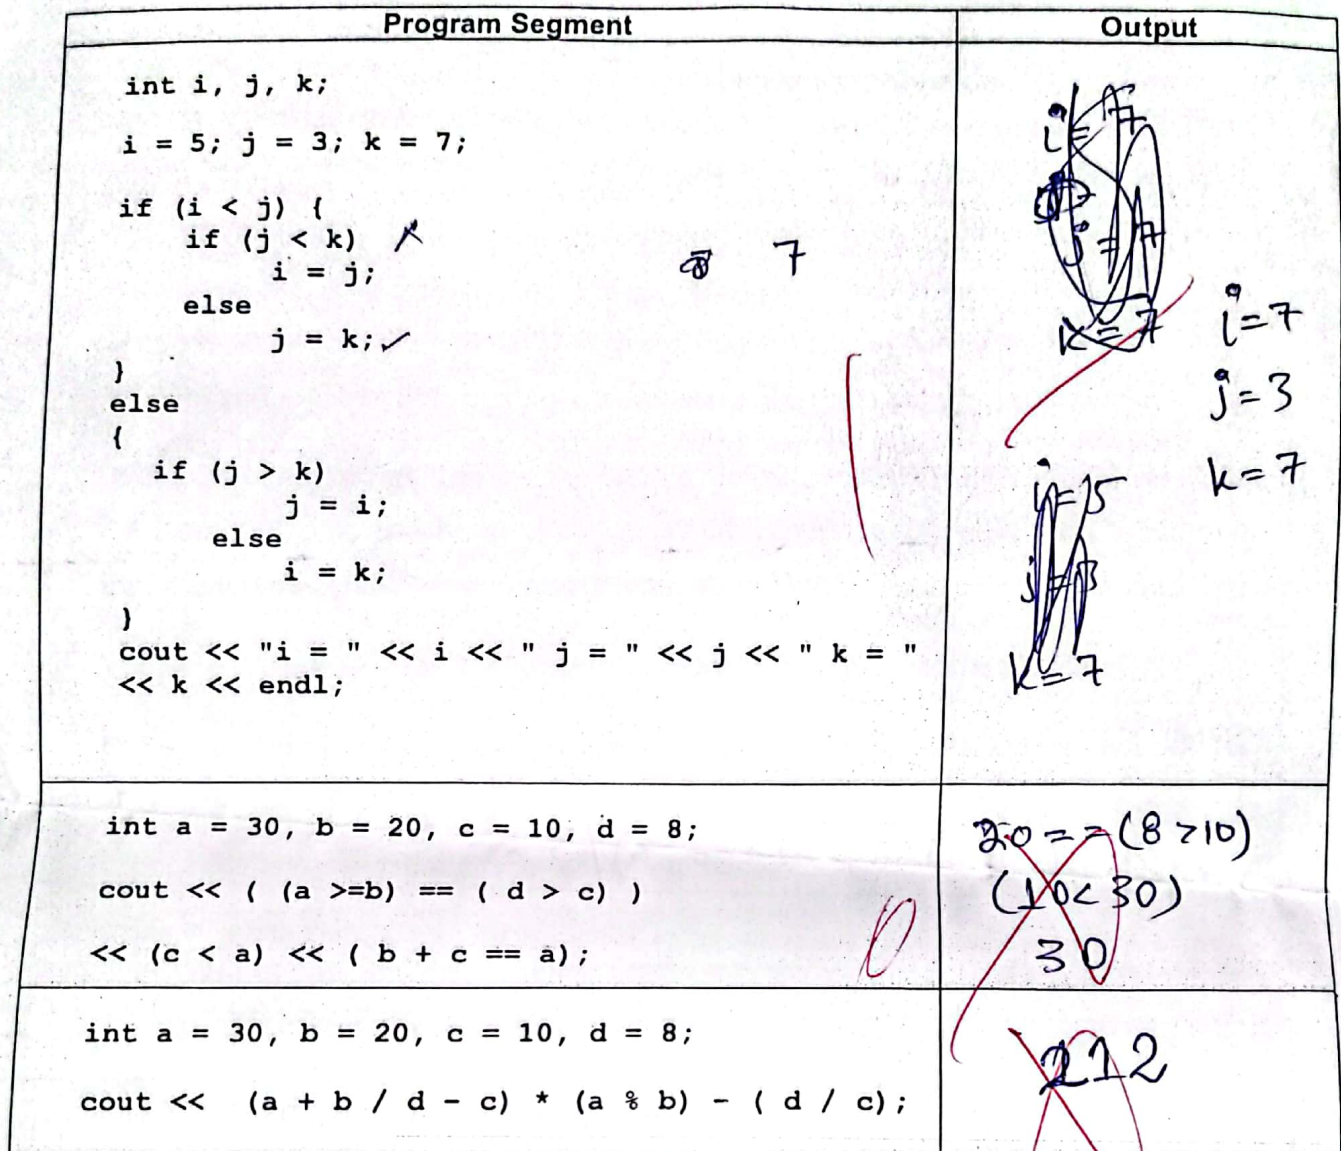 Program Segment
Output
int i, j, k;
i = 5; j = 3; k = 7;
if (i < j) {
if (j < k)
i = j;
else
j = k;
}
else
{
if (j > k)
j = i;
else
i = k;
}
cout << "i = " << i << " j = " << j << " k = "
<< k << endl;
7
i = 7
j = 7
k = 7
i=7
j=3
k=7
k=7
int a = 30, b = 20, c = 10, d = 8;
cout << ( (a >=b) == ( d > c) )
<< (c < a) << ( b + c == a);
0
20 == (8>10)
(10<30)
30
int a = 30, b = 20, c = 10, d = 8;
cout << (a + b / d - c) * (a % b) - ( d / c);
212